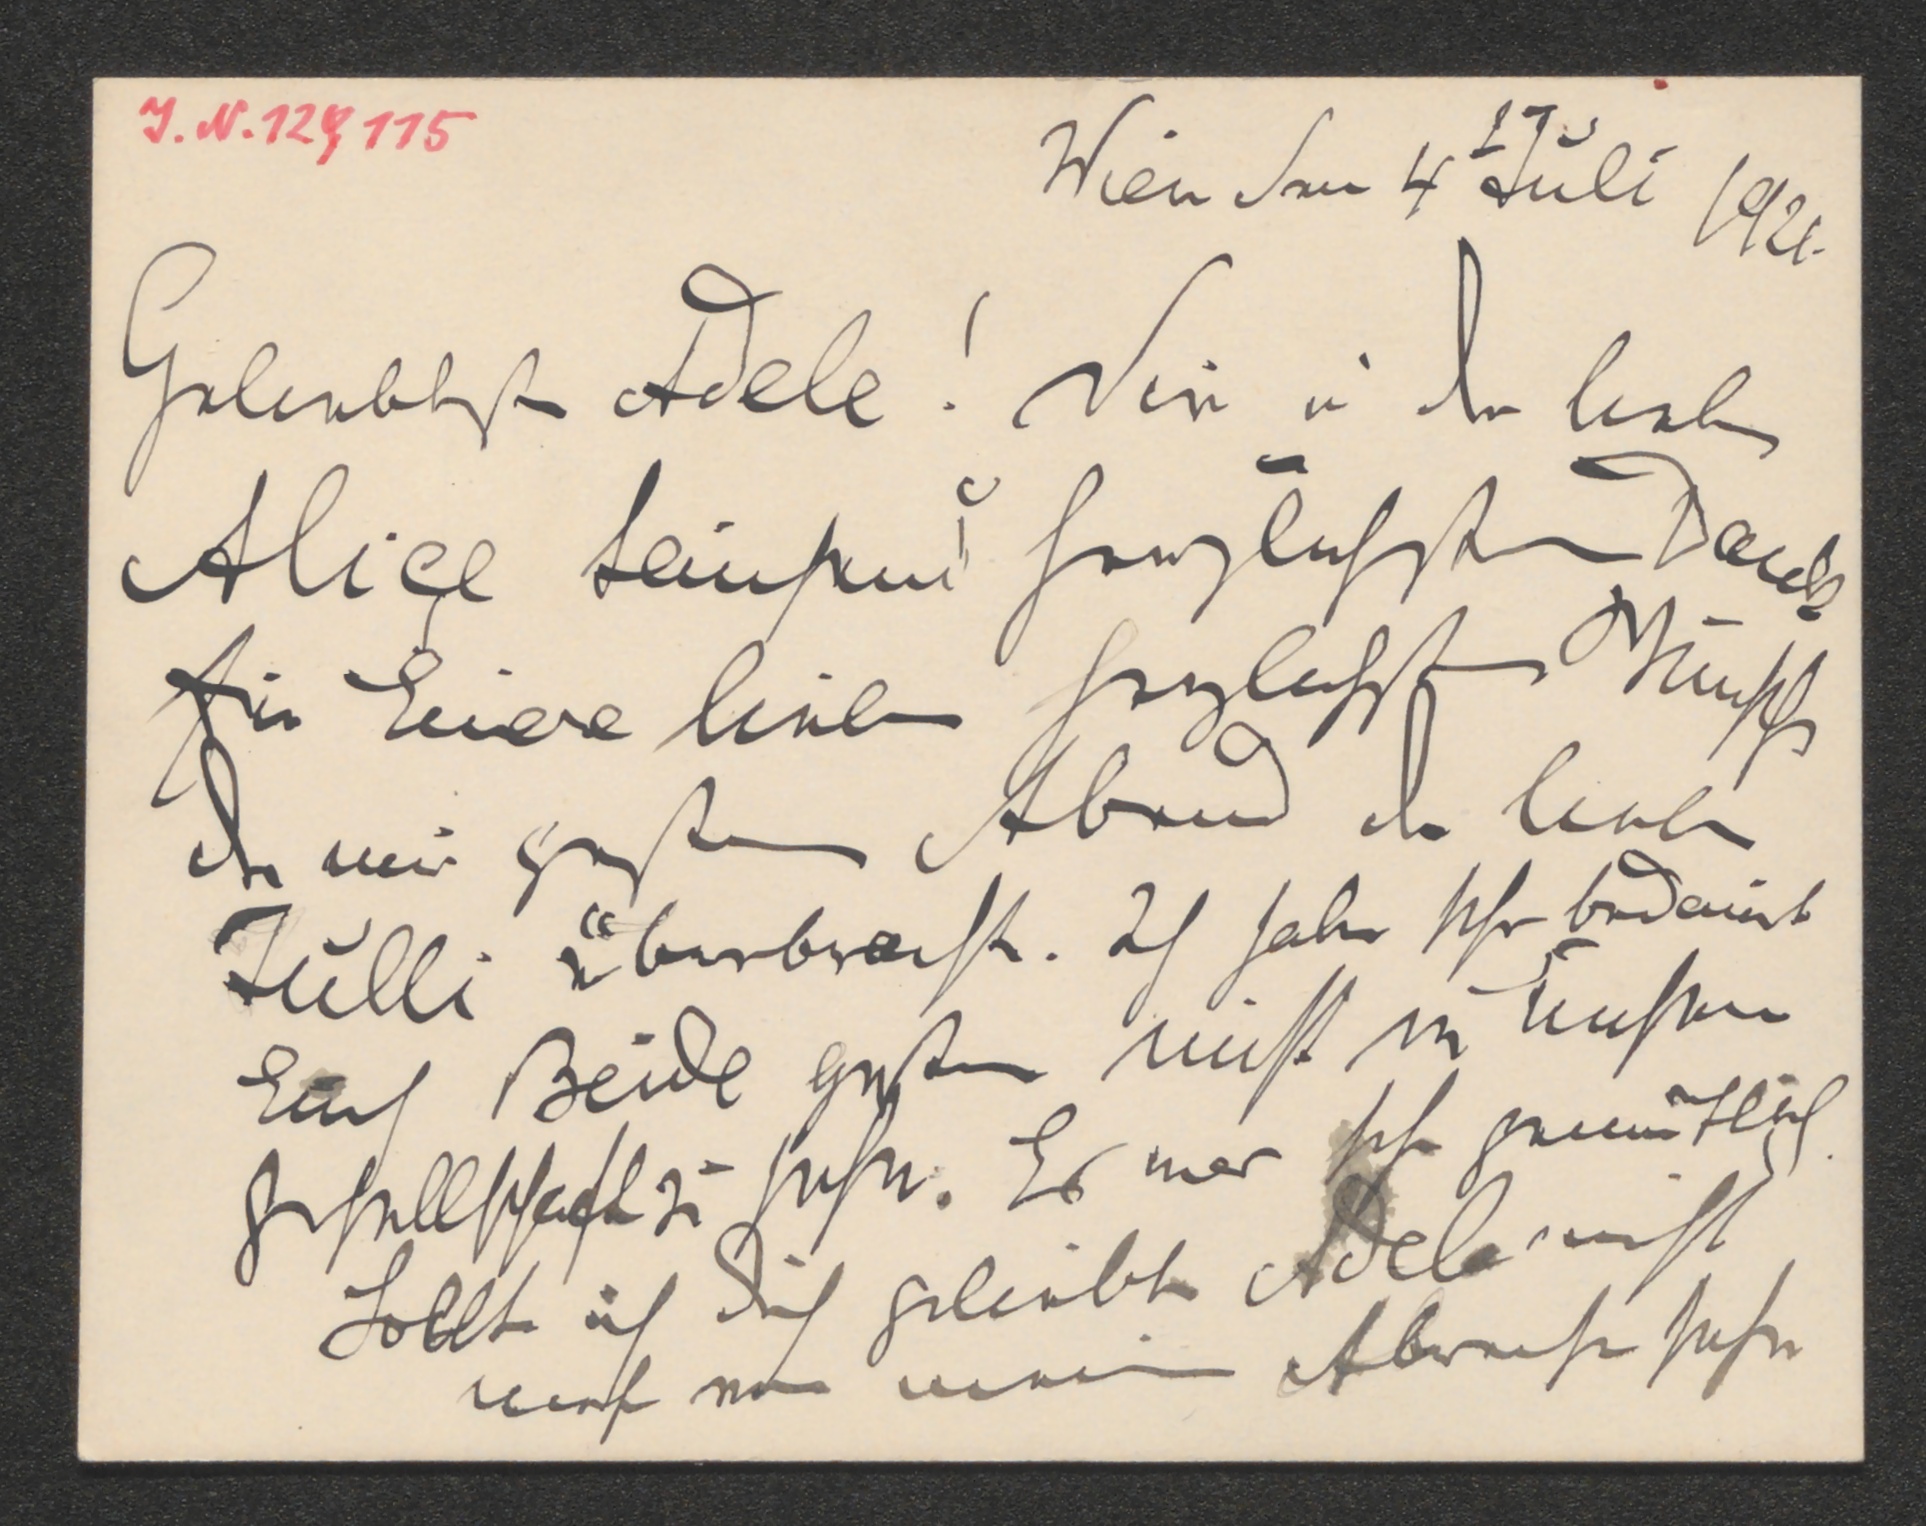 J. N. 129,115
Wien den 4 Juli 1921.
Geliebteste Adele! Dir u der lieben
Alice tausend herzlichsten Dank
für Euere lieben herzlichsten Wünsche
die mir gestern Abend die liebe
Julli überbrachte. Ich habe sehr bedauert
Euch Beide gestern nicht in unserer
Gesellschaft zu sehen. Es war sehr gemütlich.
Sollte ich Dich geliebte Adele nicht
mehr vor meiner Abreise sehen